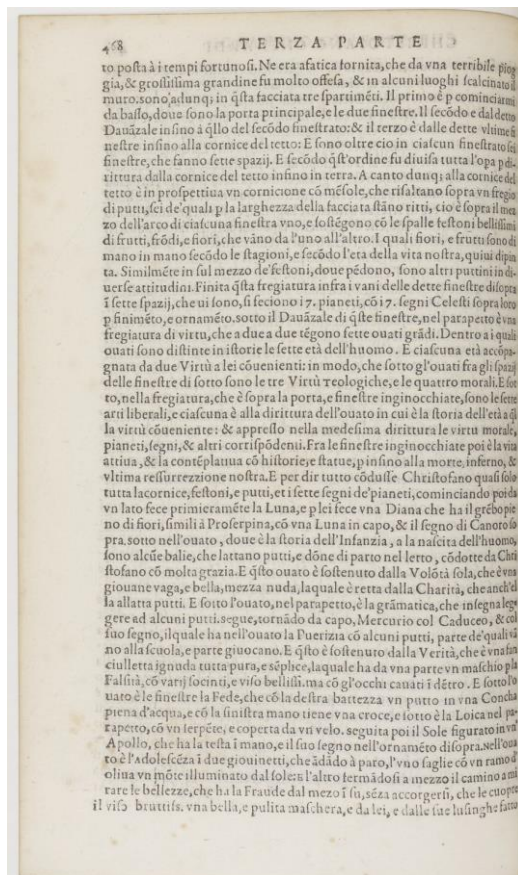 468 TERZA PARTE
to posta à i tempi fortunosi. Ne era afatica fornita, che da vna terribile piog
gia, & grossissima grandine fu molto offesa, & in alcuni luoghi scalcinato il
muro. sono adunq; in q̃sta facciata tre spartimẽti. Il primo è p cominciarmi
da basso, doue sono la porta principale, e le due finestre. Il secõdo e dal detto
Dauãzale insino à q̃llo del secõdo finestrato: & il terzo è dalle dette vltime fi
nestre insino alla cornice del tetto: E sono oltre cio in ciascun finestrato sei
finestre, che fanno sette spazij. E secõdo q̃st'ordine fu diuisa tutta l'opa p di-
rittura dalla cornice del tetto infino in terra. A canto dunq; alla cornice del
tetto è in prospettiua vn cornicione cõ mẽsole, che risaltano sopra vn fregio
di putti, sei de'quali p la larghezza della facciata stãno ritti, cio è sopra il mez
zo dell'arco di ciascuna finestra vno, e sostẽgono cõ le spalle festoni bellissimi
di frutti, frõdi, e fiori, che vãno da l'uno all'altro. I quali fiori, e frutti sono di
mano in mano secõdo le stagioni, e secõdo l'eta della vita nostra, quiui dipin
ta. Similmẽte in sul mezzo de'festoni, doue pẽdono, sono altri puttini in di-
uerse attitudini. Finita q̃sta fregiatura infra i vani delle dette finestre disopra
ĩ sette spazij, che ui sono, si feciono i 7. pianeti, cõ i 7. segni Celesti sopra loro
p finimẽto, e ornamẽto. sotto il Dauãzale di q̃ste finestre, nel parapetto è vna
fregiatura di virtu, che a due a due tẽgono sette ouati grãdi. Dentro a i quali
ouati sono distinte in istorie le sette età dell'huomo. E ciascuna età accõpa-
gnata da due Virtù a lei cõuenienti: in modo, che sotto gl'ouati fra gli spazij
delle finestre di sotto sono le tre Virtù Teologiche, e le quattro morali. E sot
to, nella fregiatura, che è sopra la porta, e finestre inginocchiate, sono le sette
arti liberali, e ciascuna è alla dirittura dell'ouato in cui è la storia dell'età a q̃l
la virtù cõueniente: & appresso nella medesima dirittura le virtu morale,
pianeti, segni, & altri corrispõdenti. Fra le finestre inginocchiate poi è la vita
attiua, & la contẽplatiua cõ historie, e statue, p insino alla morte, inferno, &
vltima ressurrezzione nostra. E per dir tutto cõdusse Christofano quasi solo
tutta la cornice, festoni, e putti, et i sette segni de'pianeti, cominciando poi da
vn lato fece primieramẽte la Luna, e p lei fece vna Diana che ha il grẽbo pie
no di fiori, simili à Proserpina, cõ vna Luna in capo, & il segno di Canoro so
pra. sotto nell'ouato, doue è la storia dell'Infanzia, a la nascita dell'huomo,
sono alcũe balie, che lattano putti, e dõne di parto nel letto, cõdotte da Chri
stofano cõ molta grazia. E q̃sto ouato è sostenuto dalla Volõtà sola, che è vna
giouane vaga, e bella, mezza nuda, laquale è retta dalla Charità, che anch'el
la allatta putti. E sotto l'ouato, nel parapetto, è la grãmatica, che insegna leg-
gere ad alcuni putti. segue, tornãdo da capo, Mercurio col Caduceo, & col
suo segno, ilquale ha nell'ouato la Puerizia cõ alcuni putti, parte de'quali vã
no alla scuola, e parte giuocano. E q̃sto è sostenuto dalla Verità, che è vna fan
ciulletta ignuda tutta pura, e sẽplice, laquale ha da vna parte vn maschio p la
Falsità, cõ varij socinti, e viso bellissi. ma cõ gl'occhi cauati ĩ dẽtro. E sotto l'o
uato è le finestre la Fede, che cõ la destra battezza vn putto in vna Concha
piena d'acqua, e cõ la sinistra mano tiene vna croce, e sotto è la Loica nel pa-
rapetto, cõ vn serpẽte, e coperta da vn velo. seguita poi il Sole figurato in vn'
Apollo, che ha la testa ĩ mano, e il suo segno nell'ornamẽto disopra. Nell'oua
to è l'Adolescẽza ĩ due giouinetti, che ãdãdo à paro, l'vno saglie cõ vn ramo d'
oliua vn mõte illuminato dal sole: E l'altro fermãdosi a mezzo il camino a mi
rare le bellezze, che ha la Fraude dal mezo ĩ su, sẽza accorgersi, che le cuopre
il viso bruttiss. vna bella, e pulita maschera, e da lei, e dalle sue lusinghe fatto